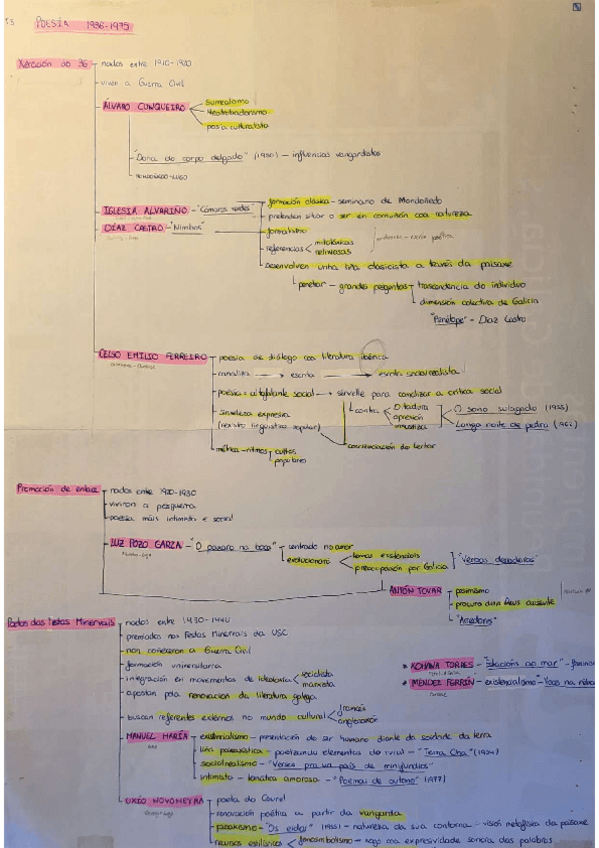 T3 POESÍA 1936-1975
Xeración do 36 nados entre 1910-1920
viven a Guerra Civil
ÁLVARO CUNQUEIRO surrealismo
neotrobadorismo
poesía culturalista
"Dona do corpo delgado" (1950) - influencias vangardistas
MONDOÑEDO-LUGO
IGLESIA ALVARIÑO - "Cómaros verdes" formación clásica - seminario de Mondoñedo
pretenden situar o ser en comunión coa natureza
DÍAZ CASTRO - "Nimbos" formalismo
referencias mitolóxicas
relixiosas
Desenvolven unha liña clasicista a través da paisaxe
penetrar - grandes preguntas trascendencia do individuo
dimensión colectiva de Galicia
"Penélope" - Díaz Castro
CELSO EMILIO FERREIRO poesía de diálogo coa literatura ibérica
escrita socialrealista
poesía = social sérvelle para canalizar a crítica social
contra Ditadura
opresión
inxustiza
O sono sulagado (1955)
Longa noite de pedra (1962)
sinxeleza expresiva
(rexistro lingüístico popular)
concienciación do lector
métrica - ritmos cultos
populares
Promoción de enlace nados entre 1920-1930
viviron a posguerra
poesía máis intimista e social
LUZ POZO GARZA - "O paxaro na boca" centrado no amor
evolucionará temas existenciais
preocupación por Galicia
"Verbas derradeiras"
ANTÓN TOVAR pesimismo
procura dun Deus ausente
"Arredores"
Poetas das Festas Minervais nados entre 1930-1940
premiados nas Festas Minervais da USC
non coñeceron a Guerra Civil
formación universitaria
integración en movementos de ideoloxía socialista
marxista
apostan pola renovación da literatura galega
buscan referentes externos no mundo cultural francés
anglosaxón
XOHANA TORRES - "Estacións ao mar" -
MÉNDEZ FERRÍN - existencialismo - "Voces na
MANUEL MARÍA existencialismo - presentación do ser humano diante da soidade da terra
liña paisaxística - poetizando elementos do rural - "Terra Chá" (1954)
socialrealismo - "Versos pra un país de minifundios"
intimista - temática amorosa - "Poemas de outono" (1977)
UXÍO NOVONEYRA poeta do Courel
renovación poética a partir da vangarda
paisaxismo - "Os eidos" (1955) - natureza da súa contorna - visión metafísica da paisaxe
recursos estilísticos fonosimbolismo - xogo coa expresividade sonora das palabras